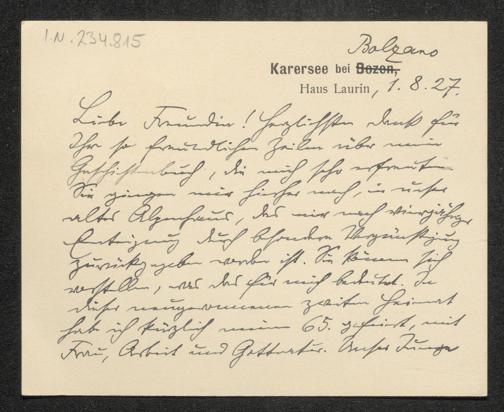 I.N. 234.815
Bolzano
Karersee bei Bozen,
Haus Laurin, 1.8.27.
Liebe Freundin! Herzlichsten Dank für
Ihre so freundlichen Zeilen über mein
Geschichtenbuch, die mich sehr erfreuten.
Sie gingen mir hieher nach, in unser
altes Alpenhaus, das mir nach vierjähriger
Enteignung durch besondere Vergünstigung
zurückgegeben worden ist. Sie können sich
vorstellen, was das für mich bedeutet. In
dieser neugewonnenen zweiten Heimat
hab ich kürzlich meinen 65. gefeiert, mit
Frau, Arbeit und Gottnatur. Unser Junge